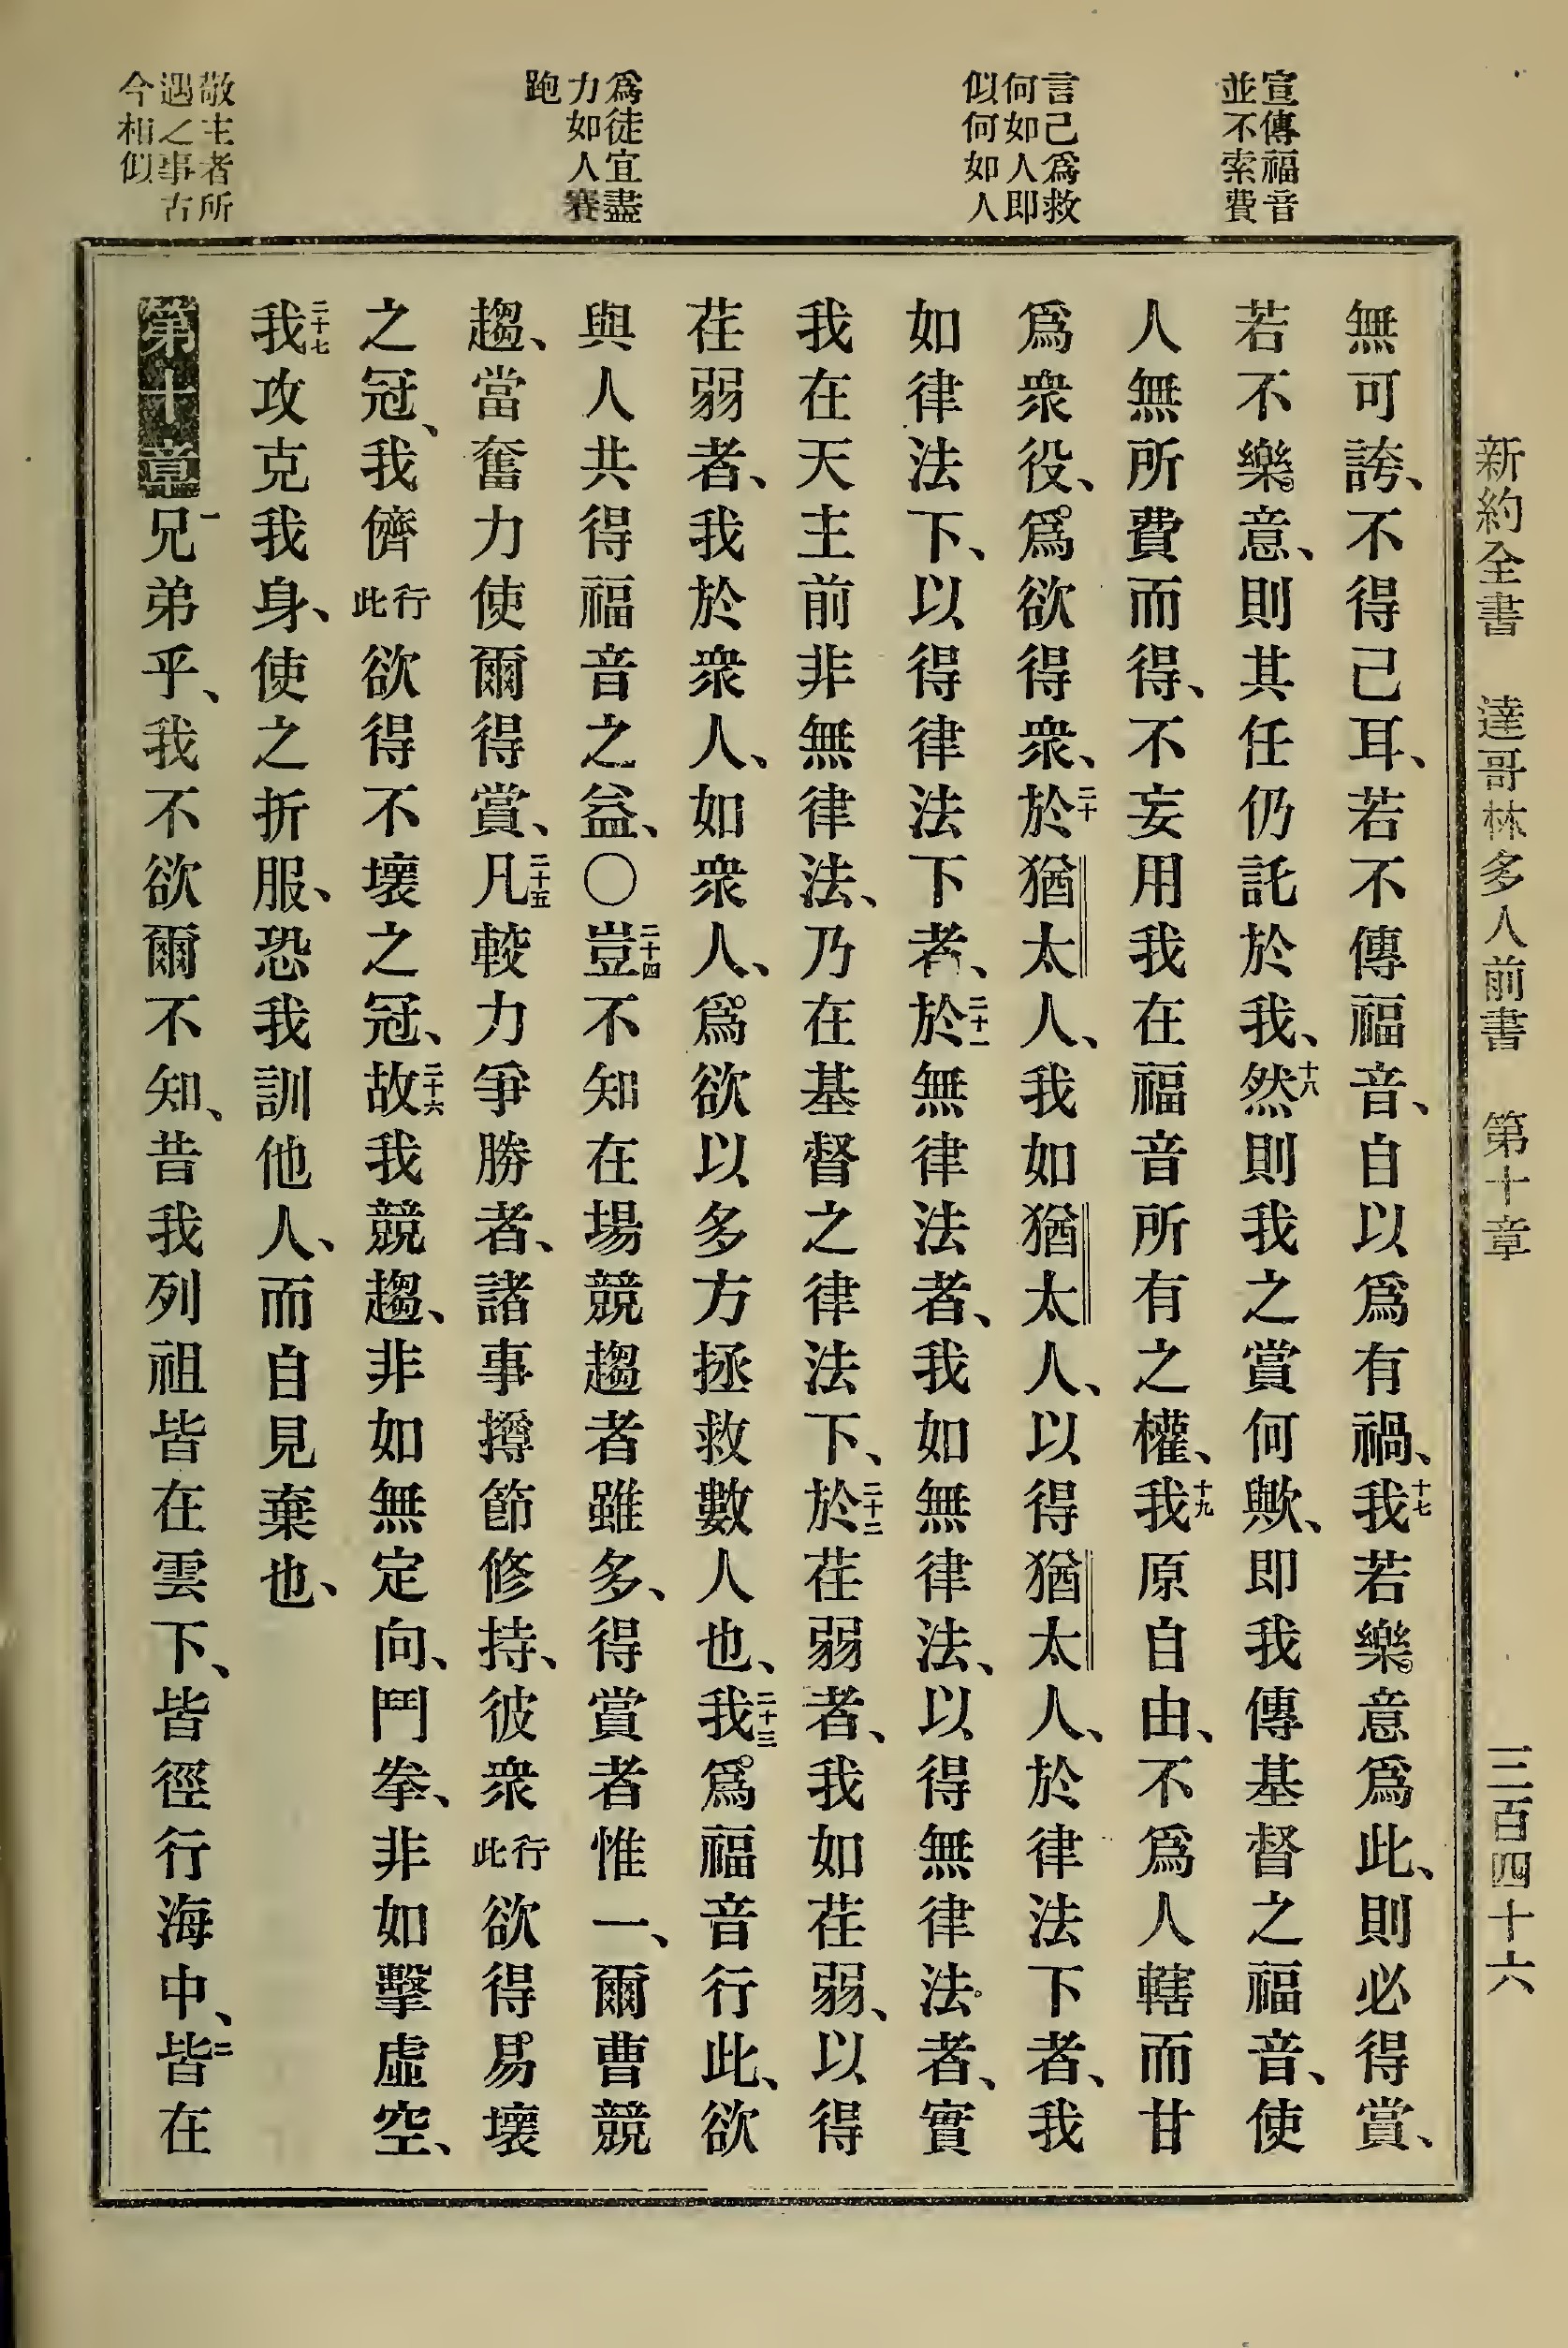 新約全書 達哥林多人前書 第十章 三百四十六
宣傳福音
並不索費
言己爲救
何如人即
似何如人
爲徒宜盡
力如人賽
跑
敬主者所
遇之事古
今相似
無可誇、不得已耳、若不傳福音、自以爲有禍、十七我若樂意爲此、則必得賞、
若不樂意、則其任仍託於我、十八然則我之賞何歟、即我傳基督之福音、使
人無所費而得、不妄用我在福音所有之權、十九我原自由、不爲人轄而甘
爲衆役、爲欲得衆、二十於猶太人、我如猶太人、以得猶太人、於律法下者、我
如律法下、以得律法下者、二十一於無律法者、我如無律法、以得無律法者、實
我在天主前非無律法、乃在基督之律法下、二十二於荏弱者、我如荏弱、以得
荏弱者、我於衆人、如衆人、爲欲以多方拯救數人也、二十三我爲福音行此、欲
與人共得福音之益、〇二十四豈不知在場競趨者雖多、得賞者惟一、爾曹競
趨、當奮力使爾得賞、二十五凡較力爭勝者、諸事撙節修持、彼衆行此欲得易壞
之冠、我儕行此欲得不壞之冠、二十六故我競趨、非如無定向、鬥拳、非如擊虛空、
二十七我攻克我身、使之折服、恐我訓他人、而自見棄也、
第十章一兄弟乎、我不欲爾不知、昔我列祖皆在雲下、皆徑行海中、二皆在